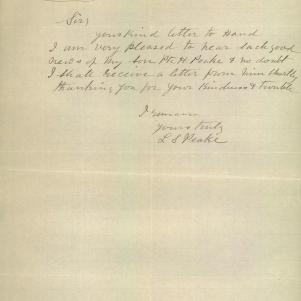 Sir,
your kind letter to Hand
I am very pleased to hear such good
news of my Son Pte H Peake & no doubt
I shall receive a letter from him shortly
thanking you for your kindness & trouble
I remain
yours truly
L S Peake